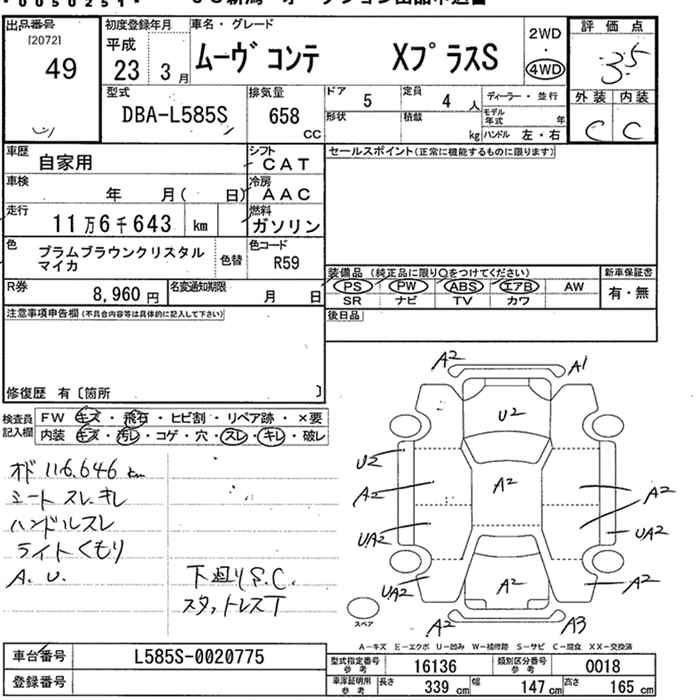 出品番号
[2072]
49
初度登録年月
平成
23 3月
車名・グレード
ムーヴ コンテ XプラスS
2WD
・
4WD
評価点
3.5
外装 内装
C C
型式
DBA-L585S
排気量
658
CC
ドア 5
定員 4 人
形状
積載 kg
ディーラー・並行
モデル年式 年
ハンドル 左・右
車歴 自家用
シフト CAT
車検 年 月( 日)
冷房 AAC
走行 11万6千643 km
燃料 ガソリン
色 プラムブラウンクリスタル
マイカ
色替
色コード R59
R券 8,960円
名変通知期限 月 日
セールスポイント(正常に機能するものに限ります)
装備品 (純正品に限り○をつけてください)
PS PW ABS エアB AW
SR ナビ TV カワ
新車保証書
有・無
後日品
注意事項申告欄(不具合内容等は具体的に記入して下さい)
修復歴 有〔箇所 〕
検査員
記入欄
FW キズ・飛石・ヒビ割・リペア跡・×要
内装 キズ・汚レ・コゲ・穴・スレ・キレ・破レ
オド 116,646 km
シート スレ.キレ
ハンドルスレ
ライトくもり
A. U.
下廻りS.C.
スタットレスT
A2 A1
U2
U2
A2 A2 A2
UA2 UA2
UA2 A2 A2
A2 A3
スペア
A-キズ E-エクボ U-凹み W-補修跡 S-サビ C-腐食 XX-交換済
車台番号 L585S-0020775
登録番号
型式指定番号 参考 16136
類別区分番号 参考 0018
車庫証明用 参考 長さ 339 cm 幅 147 cm 高さ 165 cm